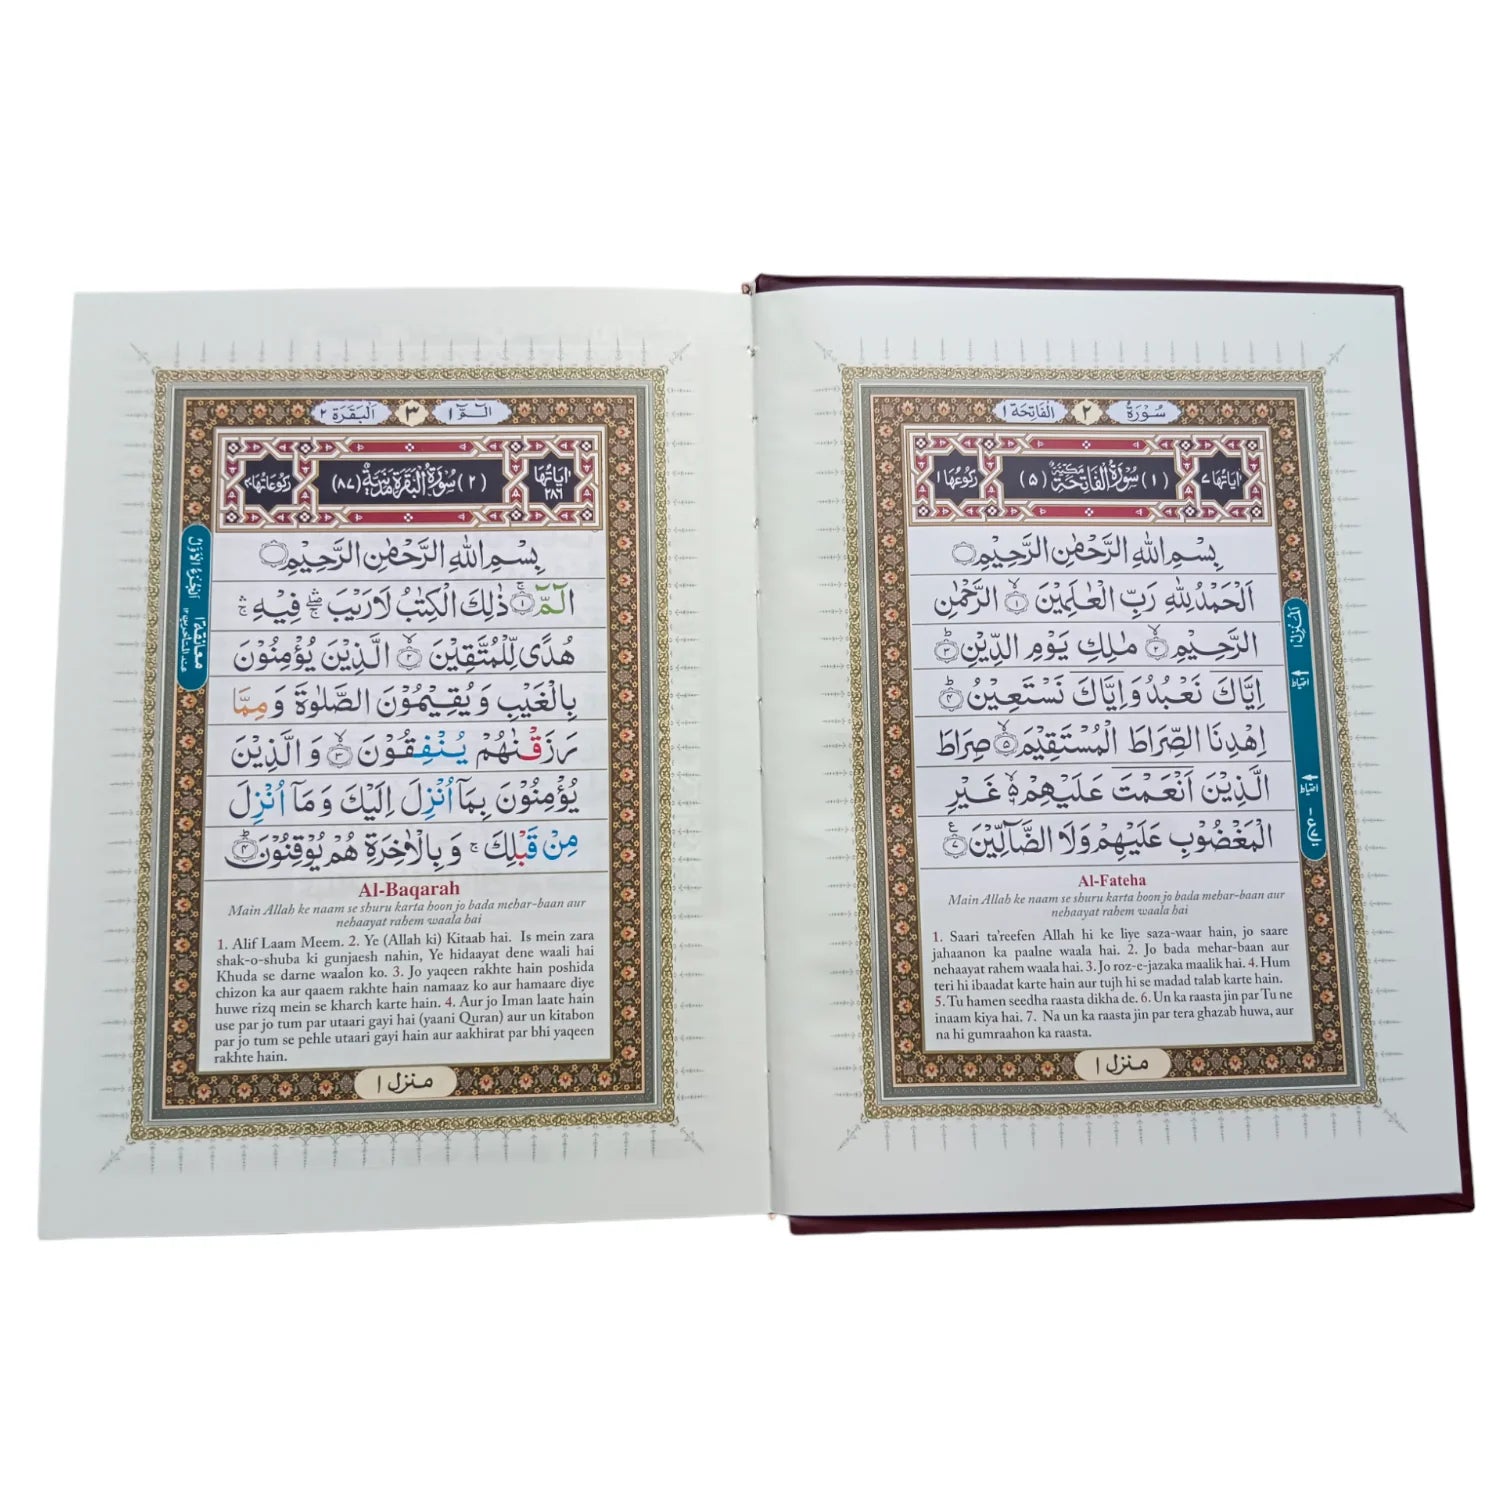 سُوْرَةُ
٢
اَلْفَاتِحَة ١
اٰيَاتُهَا ٧
(١) سُوْرَةُ الْفَاتِحَةِ مَكِّيَّةٌ (٥)
رُكُوْعُهَا ١
بِسْمِ اللّٰهِ الرَّحْمٰنِ الرَّحِيْمِ
اَلْحَمْدُ لِلّٰهِ رَبِّ الْعٰلَمِيْنَ ۙ١ الرَّحْمٰنِ
الرَّحِيْمِ ۙ٢ مٰلِكِ يَوْمِ الدِّيْنِ ؕ٣
اِيَّاكَ نَعْبُدُ وَاِيَّاكَ نَسْتَعِيْنُ ؕ٤
اِهْدِنَا الصِّرَاطَ الْمُسْتَقِيْمَ ۙ٥ صِرَاطَ
الَّذِيْنَ اَنْعَمْتَ عَلَيْهِمْ ۙ۬ غَيْرِ
الْمَغْضُوْبِ عَلَيْهِمْ وَلَا الضَّآلِّيْنَ ٧
اَلْمَنْزِلُ ١
Al-Fateha
Main Allah ke naam se shuru karta hoon jo bada mehar-baan aur
nehaayat rahem waala hai
1. Saari ta'reefen Allah hi ke liye saza-waar hain, jo saare
jahaanon ka paalne waala hai. 2. Jo bada mehar-baan aur
nehaayat rahem waala hai. 3. Jo roz-e-jazaka maalik hai. 4. Hum
teri hi ibaadat karte hain aur tujh hi se madad talab karte hain.
5. Tu hamen seedha raasta dikha de. 6. Un ka raasta jin par Tu ne
inaam kiya hai. 7. Na un ka raasta jin par tera ghazab huwa, aur
na hi gumraahon ka raasta.
منزل ١
الٓمّٓ ١
٣
اَلْبَقَرَة ٢
اٰيَاتُهَا ٢٨٦
(٢) سُوْرَةُ الْبَقَرَةِ مَدَنِيَّةٌ (٨٧)
رُكُوْعَاتُهَا ٤٠
بِسْمِ اللّٰهِ الرَّحْمٰنِ الرَّحِيْمِ
الٓمّٓ ۚ١ ذٰلِكَ الْكِتٰبُ لَا رَيْبَ ۖۛ فِيْهِ ۛۚ
هُدًى لِّلْمُتَّقِيْنَ ۙ٢ الَّذِيْنَ يُؤْمِنُوْنَ
بِالْغَيْبِ وَيُقِيْمُوْنَ الصَّلٰوةَ وَمِمَّا
رَزَقْنٰهُمْ يُنْفِقُوْنَ ۙ٣ وَالَّذِيْنَ
يُؤْمِنُوْنَ بِمَآ اُنْزِلَ اِلَيْكَ وَمَآ اُنْزِلَ
مِنْ قَبْلِكَ ۚ وَبِالْاٰخِرَةِ هُمْ يُوْقِنُوْنَ ؕ٤
اَلْجُزْءُ الْاَوَّلُ
معانقة ١
Al-Baqarah
Main Allah ke naam se shuru karta hoon jo bada mehar-baan aur
nehaayat rahem waala hai
1. Alif Laam Meem. 2. Ye (Allah ki) Kitaab hai. Is mein zara
shak-o-shuba ki gunjaesh nahin, Ye hidaayat dene waali hai
Khuda se darne waalon ko. 3. Jo yaqeen rakhte hain poshida
chizon ka aur qaaem rakhte hain namaaz ko aur hamaare diye
huwe rizq mein se kharch karte hain. 4. Aur jo Iman laate hain
use par jo tum par utaari gayi hai (yaani Quran) aur un kitabon
par jo tum se pehle utaari gayi hain aur aakhirat par bhi yaqeen
rakhte hain.
منزل ١